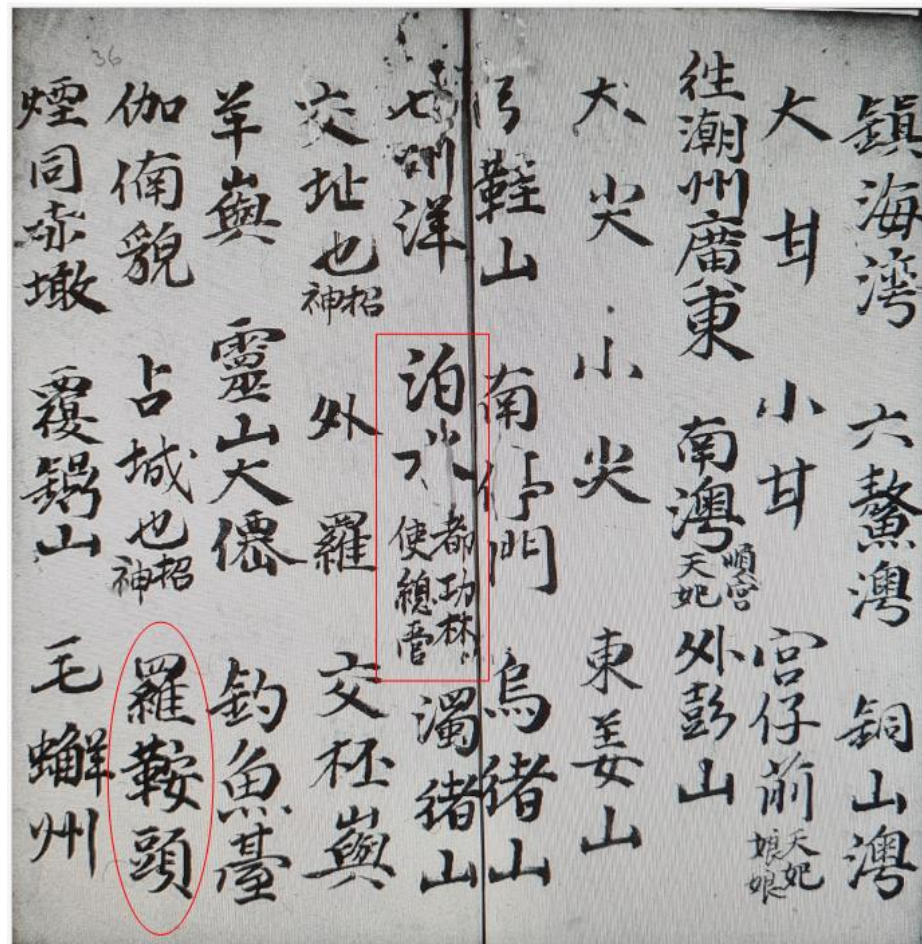 鎮海湾 六鰲澳 銅山澳
大甘 小甘 順宫 宫仔前 天妃娘娘
徃潮州廣東 南澳 天妃 外彭山
大尖 小尖 東姜山
弓鞋山 南停門 烏猪山
七州洋 泊水 都功林 使總管 濁猪山
交址也 招神 外羅 交杯嶼
羊嶼 靈山大僊 釣魚臺
伽倆貌 占城也 招神 羅鞍頭
煙同赤墩 覆鐋山 毛蠏州
36